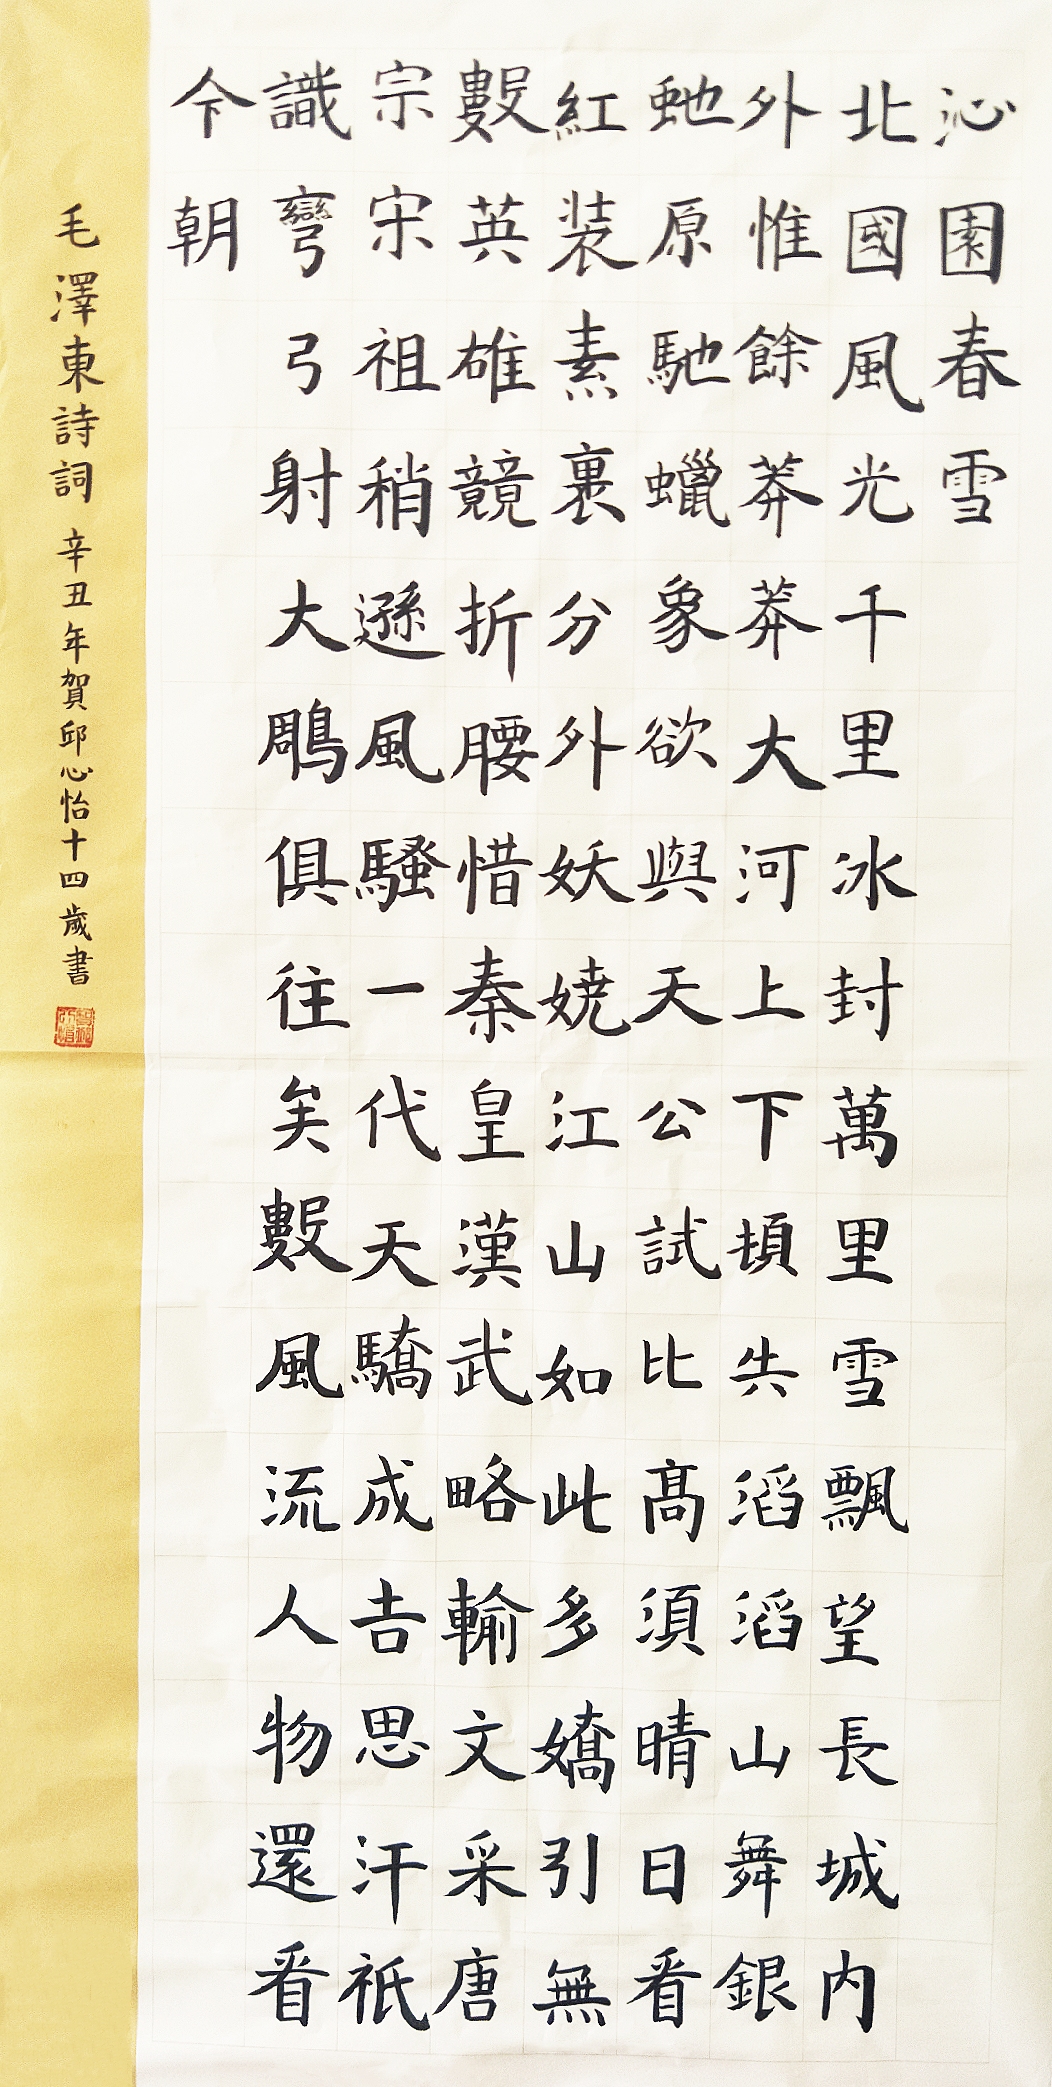 沁園春雪
北國風光千里冰封萬里雪飄望長城内
外惟餘莽莽大河上下頓失滔滔山舞銀
虵原馳蠟象欲與天公試比髙須晴日看
紅装素裹分外妖娆江山如此多嬌引無
數英雄競折腰惜秦皇漢武略輸文采唐
宗宋祖稍遜風騷一代天驕成吉思汗祇
識彎弓射大鵰俱往矣數風流人物還看
今朝
毛澤東詩詞 辛丑年賀邱心怡十四歲書